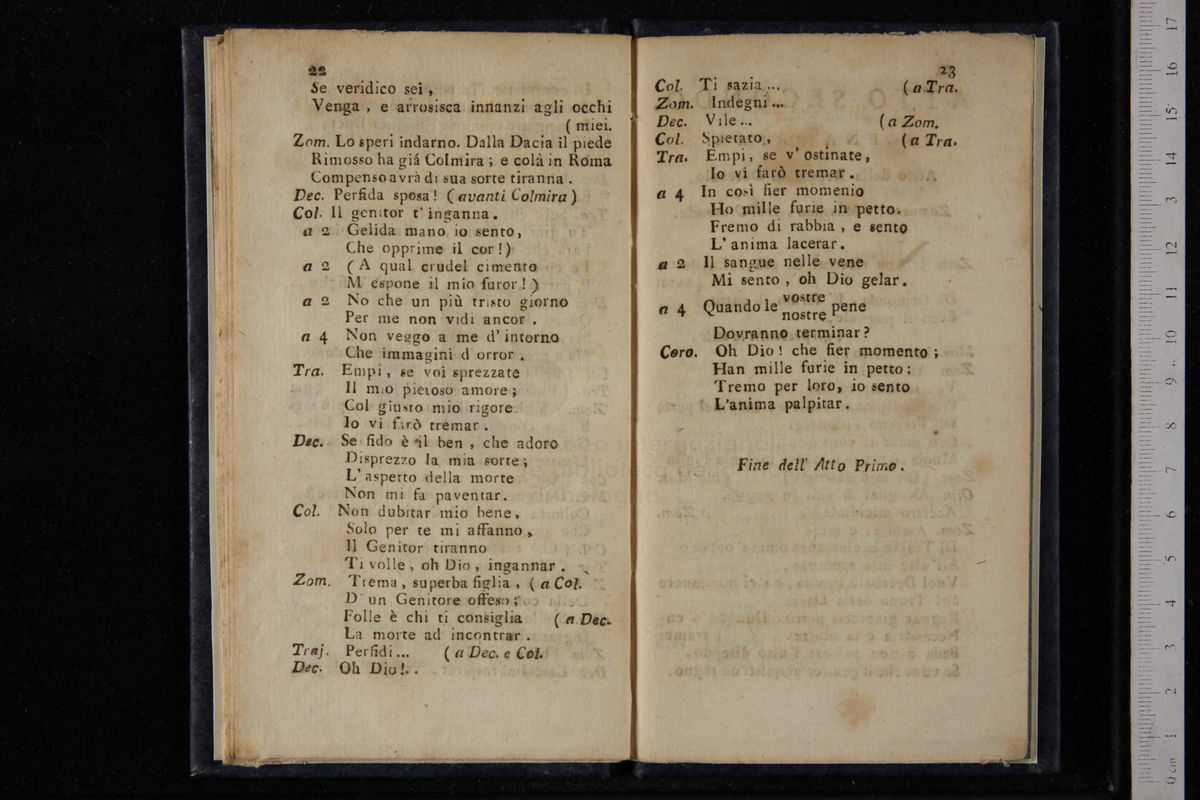 22
Se veridico sei,
Venga, e arrosisca innanzi agli occhi
(miei.
Zom. Lo speri indarno. Dalla Dacia il piede
Rimosso ha giá Colmira; e colà in Roma
Compenso avrà di sua sorte tiranna.
Dec. Perfida sposa! (avanti Colmira)
Col. Il genitor t'inganna.
a 2 Gelida mano io sento,
Che opprime il cor!)
a 2 (A qual crudel cimento
M'espone il mio furor!)
a 2 No che un più tristo giorno
Per me non vidi ancor.
a 4 Non veggo a me d'intorno
Che immagini d orror.
Tra. Empi, se voi sprezzate
Il mio pietoso amore;
Col giusto mio rigore
Io vi farò tremar.
Dec. Se fido è il ben, che adoro
Disprezzo la mia sorte;
L'aspetto della morte
Non mi fa paventar.
Col. Non dubitar mio bene,
Solo per te mi affanno,
Il Genitor tiranno
Ti volle, oh Dio, ingannar.
Zom. Trema, superba figlia, (a Col.
D'un Genitore offeso;
Folle è chi ti consiglia (a Dec.
La morte ad incontrar.
Traj. Perfidi... (a Dec. e Col.
Dec. Oh Dio!..
23
Col. Ti sazia... (a Tra.
Zom. Indegni...
Dec. Vile... (a Zom.
Col. Spietato, (a Tra.
Tra. Empi, se v'ostinate,
Io vi farò tremar.
a 4 In così fier momenio
Ho mille furie in petto.
Fremo di rabbia, e sento
L'anima lacerar.
a 2 Il sangue nelle vene
Mi sento, oh Dio gelar.
a 4 Quando le vostre nostre pene
Dovranno terminar?
Coro. Oh Dio! che fier momento;
Han mille furie in petto;
Tremo per loro, io sento
L'anima palpitar.
Fine dell' Atto Primo.
0 cm 1 2 3 4 5 6 7 8 9 10 11 12 13 14 15 16 17